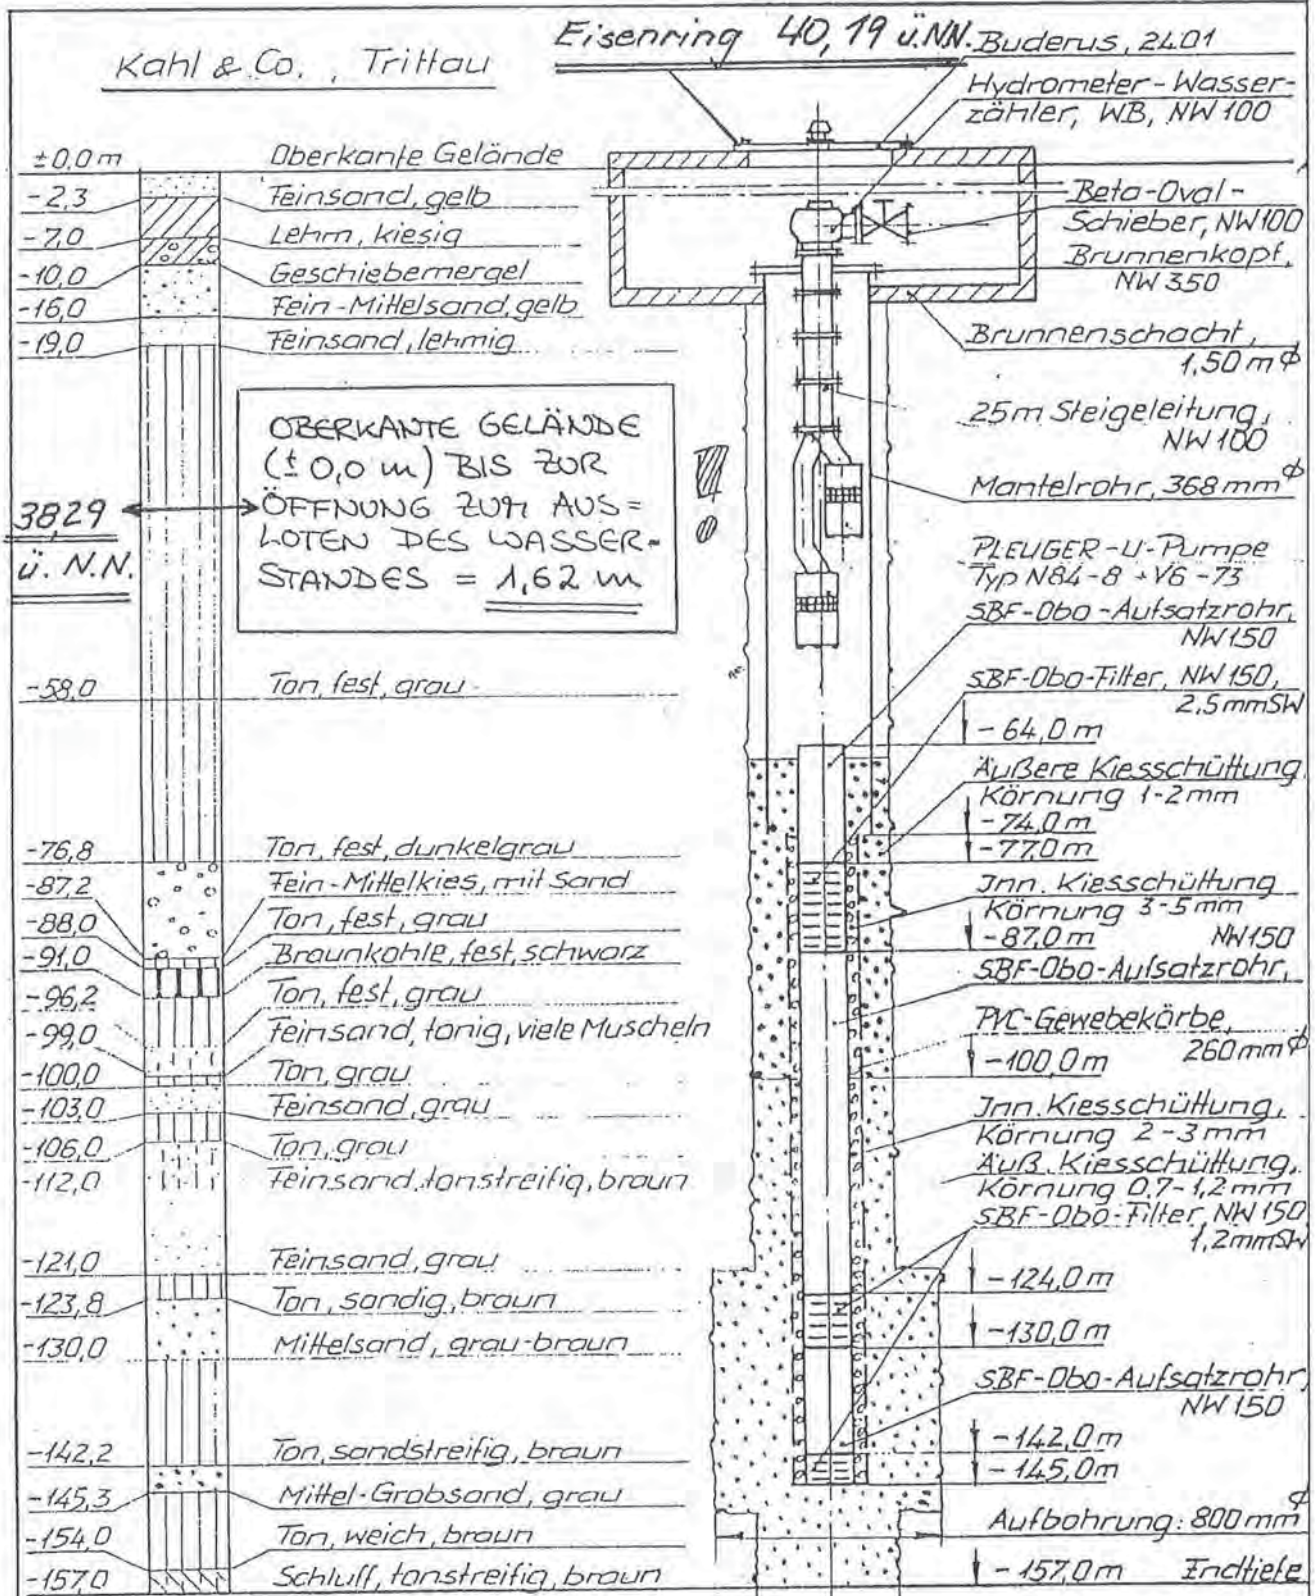 Kahl & Co., Trittau
Eisenring 40,19 ü.NN.
±0,0 m Oberkante Gelände
-2,3 Feinsand, gelb
-7,0 Lehm, kiesig
-10,0 Geschiebemergel
-16,0 Fein-Mittelsand, gelb
-19,0 Feinsand, lehmig
OBERKANTE GELÄNDE
(± 0,0 m) BIS ZUR
ÖFFNUNG ZUM AUS=
LOTEN DES WASSER-
STANDES = 1,62 m
38,29
ü. N.N.
-58,0 Ton, fest, grau
-76,8 Ton, fest, dunkelgrau
-87,2 Fein-Mittelkies, mit Sand
-88,0 Ton, fest, grau
-91,0 Braunkohle, fest, schwarz
-96,2 Ton, fest, grau
-99,0 Feinsand, tonig, viele Muscheln
-100,0 Ton, grau
-103,0 Feinsand, grau
-106,0 Ton, grau
-112,0 Feinsand, tonstreifig, braun
-121,0 Feinsand, grau
-123,8 Ton, sandig, braun
-130,0 Mittelsand, grau-braun
-142,2 Ton, sandstreifig, braun
-145,3 Mittel-Grobsand, grau
-154,0 Ton, weich, braun
-157,0 Schluff, tonstreifig, braun
Buderus, 2401
Hydrometer-Wasser-
zähler, WB, NW 100
Beta-Oval-
Schieber, NW 100
Brunnenkopf,
NW 350
Brunnenschacht,
1,50 m ⌀
25m Steigeleitung,
NW 100
Mantelrohr, 368 mm ⌀
PLEUGER-U-Pumpe
Typ N84-8 + V6-73
SBF-Obo-Aufsatzrohr,
NW 150
SBF-Obo-Filter, NW 150,
2,5 mm SW
- 64,0 m
Äußere Kiesschüttung
Körnung 1-2 mm
- 74,0 m
- 77,0 m
Jnn. Kiesschüttung
Körnung 3-5 mm
- 87,0 m NW 150
SBF-Obo-Aufsatzrohr,
PVC-Gewebekörbe,
260 mm ⌀
- 100,0 m
Jnn. Kiesschüttung,
Körnung 2-3 mm
Äuß. Kiesschüttung,
Körnung 0,7-1,2 mm
SBF-Obo-Filter, NW 150
1,2 mm SW
- 124,0 m
- 130,0 m
SBF-Obo-Aufsatzrohr,
NW 150
- 142,0 m
- 145,0 m
Aufbohrung: 800 mm ⌀
- 157,0 m Endtiefe